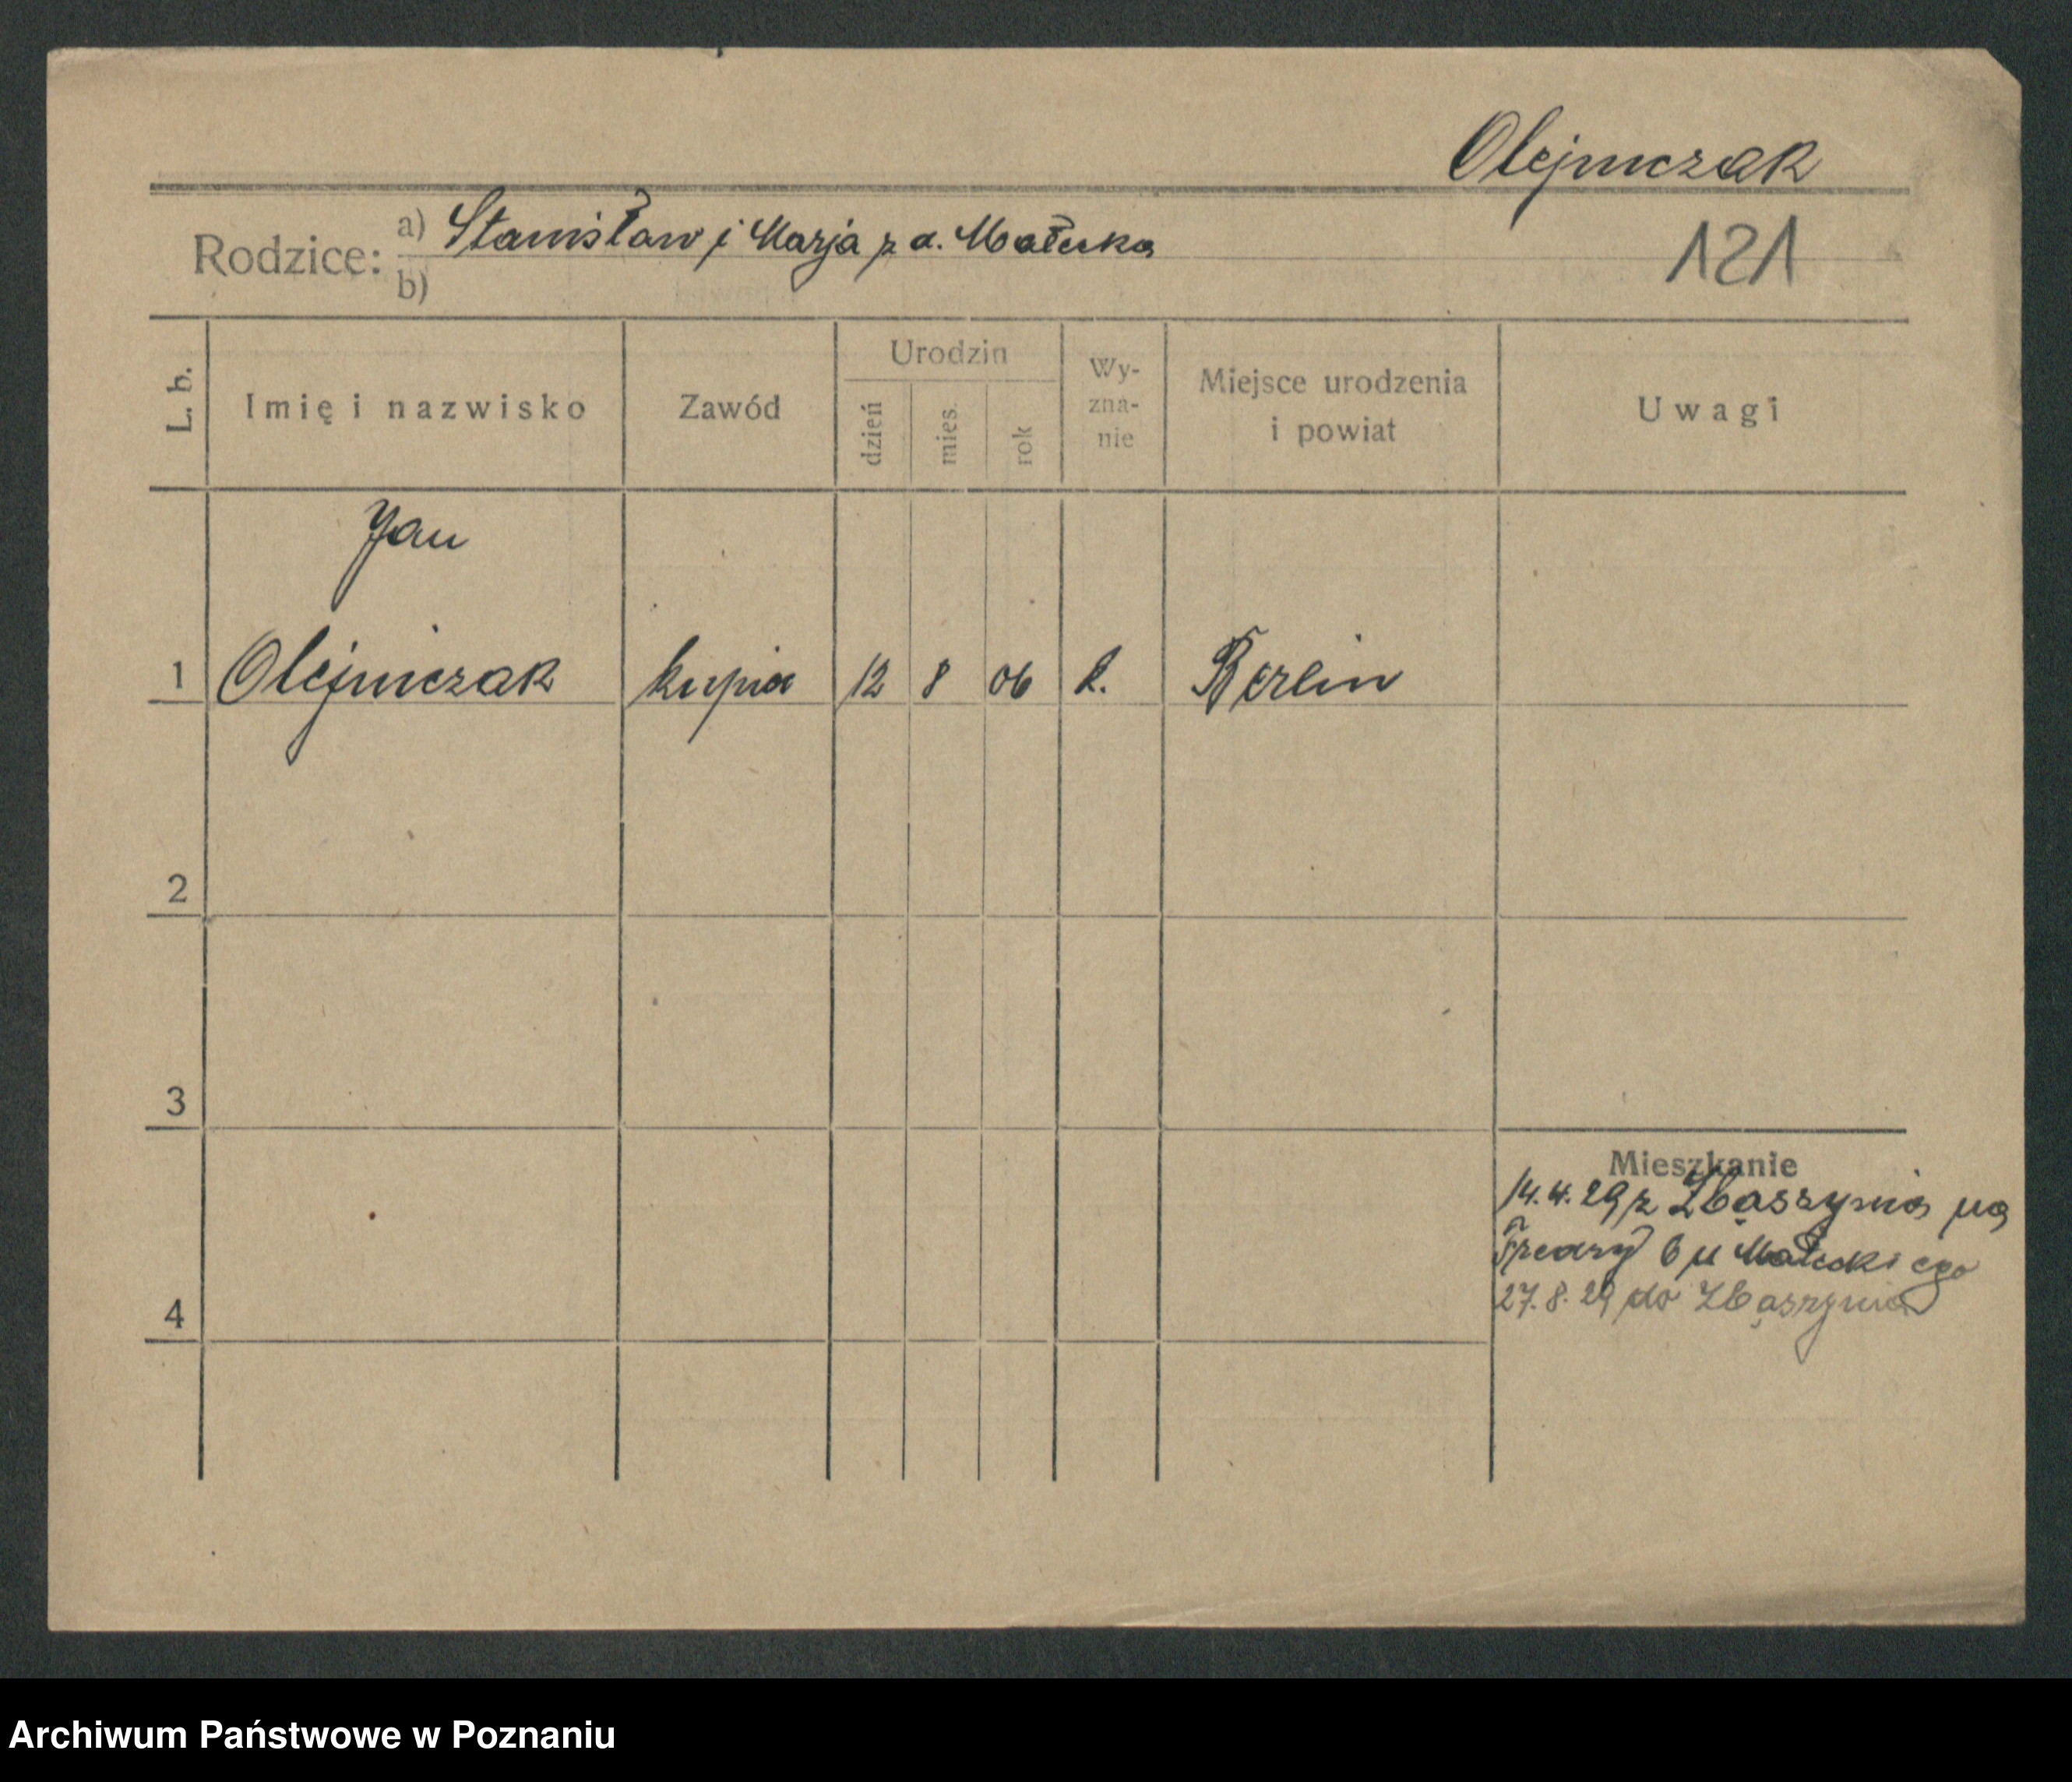 Olejniczak
Rodzice: a) Stanisław i Marja z d. Małecka
b)
121
L. b.
Imię i nazwisko
Zawód
Urodzin
dzień
mies.
rok
Wy-
zna-
nie
Miejsce urodzenia
i powiat
Uwagi
Jan
1 Olejniczak kupiec 12 8 06 k. Berlin
2
3
Mieszkanie
14.4.29 z Zbąszynia na
Fredry 6 u Małeckiego
27.8.29 do Zbąszynia
4
Archiwum Państwowe w Poznaniu